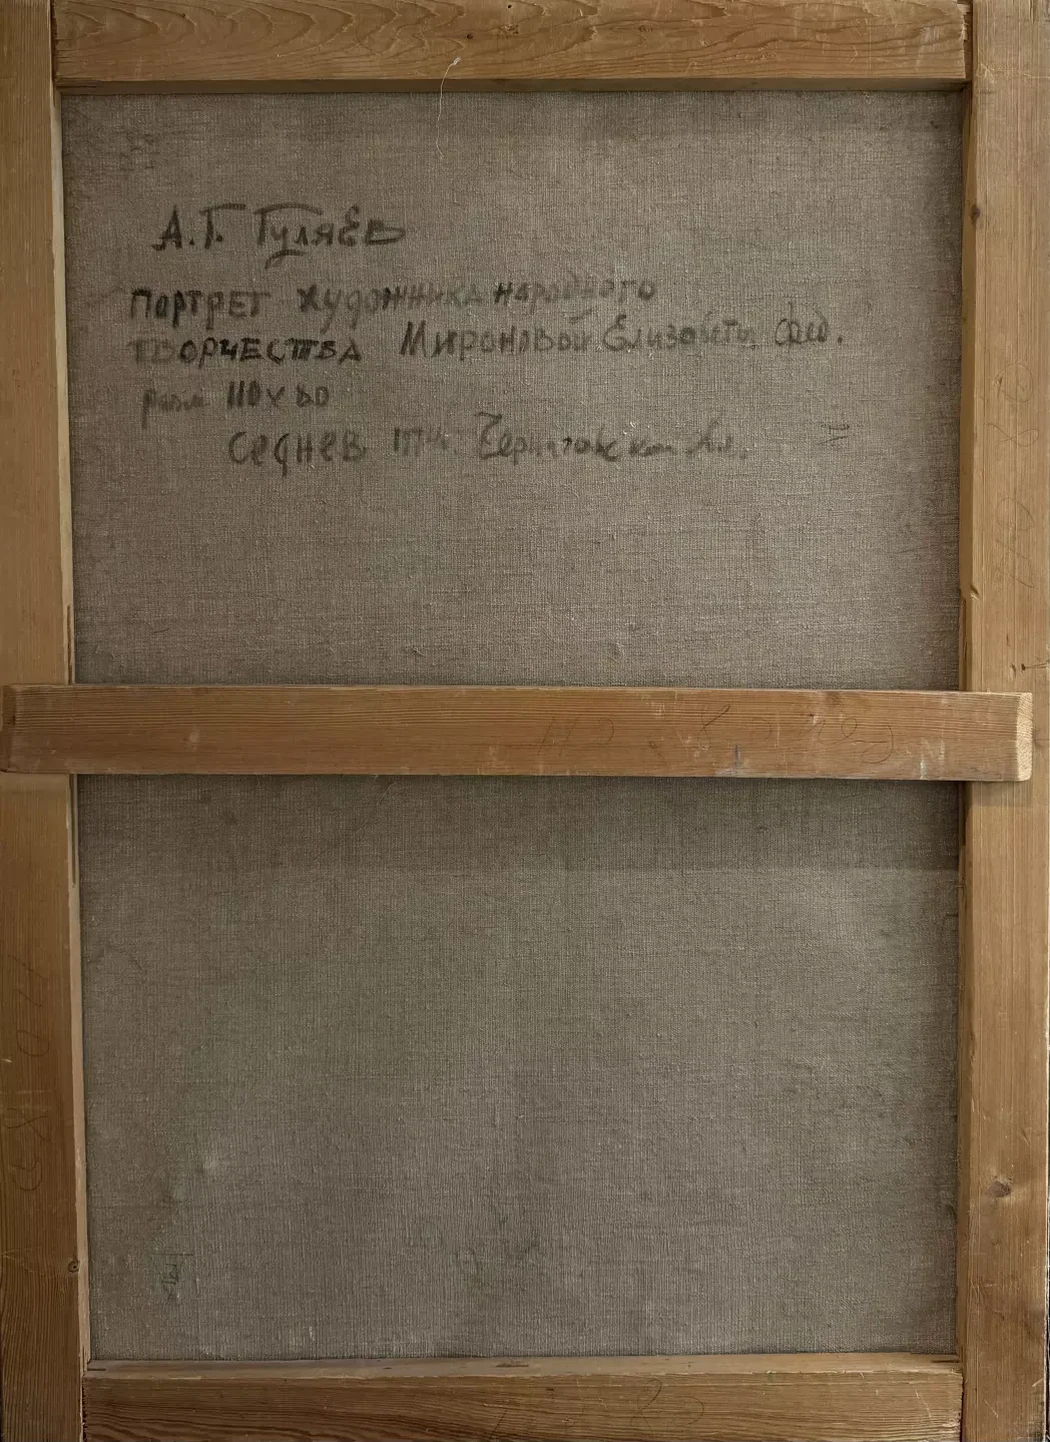 А.Г. Гуляев
Портрет художника народного
творчества Мироновой Елизаветы Фед.
разм 110 x 80
Седнев